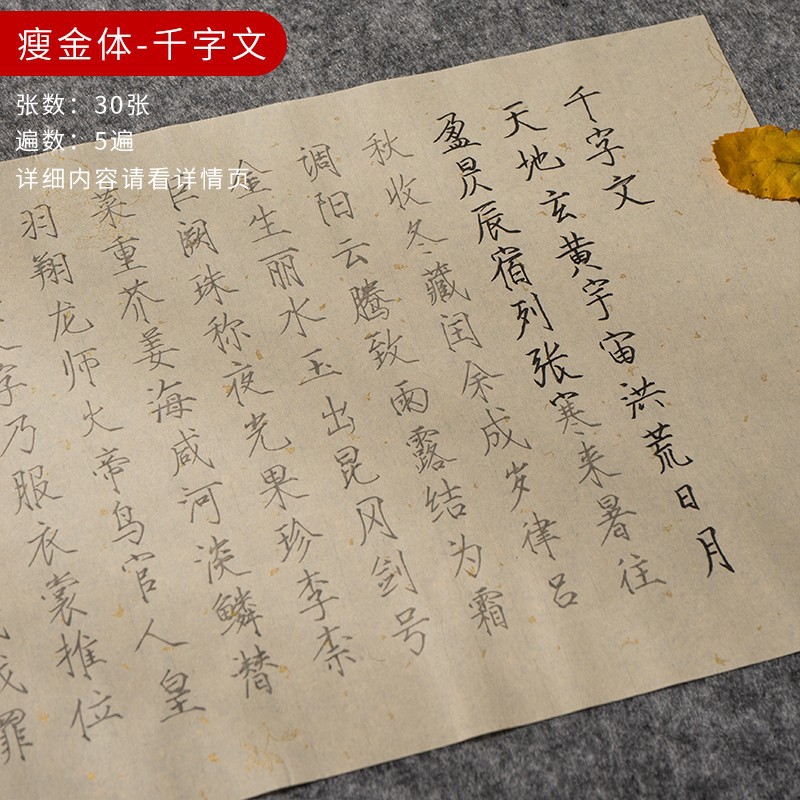 瘦金体-千字文
张数：30张
遍数：5遍
详细内容请看详情页
千字文
天地玄黄宇宙洪荒日月
盈昃辰宿列张寒来暑往
秋收冬藏闰余成岁律吕
调阳云腾致雨露结为霜
金生丽水玉出昆冈剑号
巨阙珠称夜光果珍李柰
菜重芥姜海咸河淡鳞潜
羽翔龙师火帝鸟官人皇
字乃服衣裳推位
罪